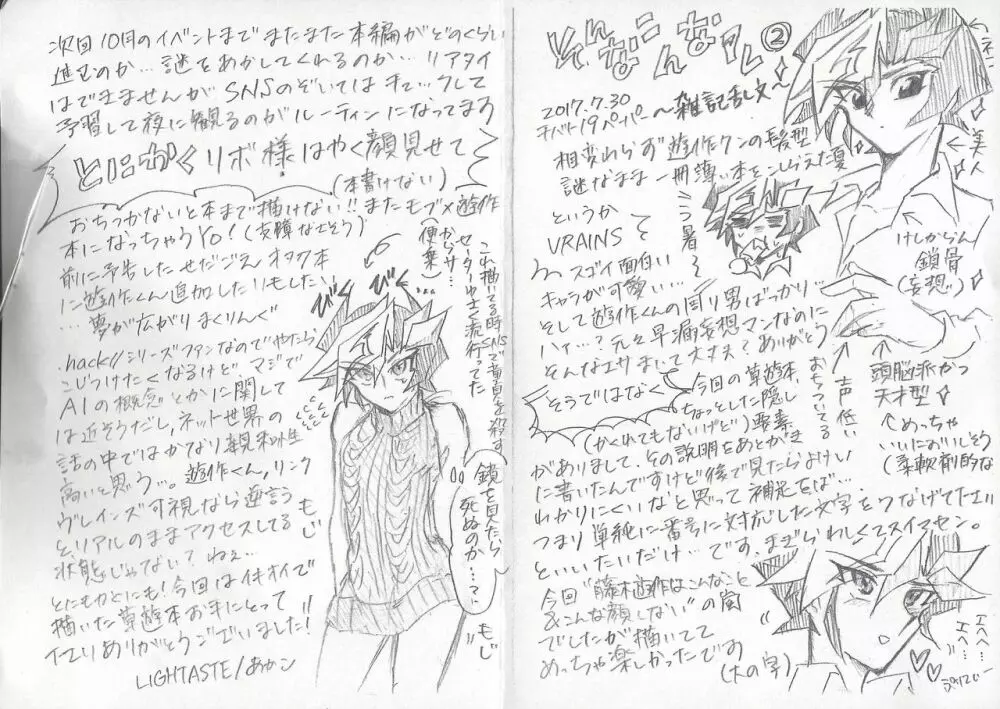 そんなこんなで ②
2017.7.30
キバト19ペーパー
～雑記乱文～
相変わらず遊作クンの髪型
謎なまま一冊薄い本をこしらえた夏
クソ暑～
というか
VRAINS
スゴイ面白い
キャラが可愛い…
そして遊作くんの周り男ばっかり…
ハァ…？元々早漏妄想マンなのに
そんなエサまいて大丈夫？ありがとう
そうではなく
今回の草遊本、
ちょっとした隠し
(かくれてもないけど)要素
がありまして、その説明をあとがき
に書いたんですけど後で見たらよけい
わかりにくいなと思って補足をば…
つまり単純に番号に対応した文字をつなげてただ
といいたいだけ…です、まぎらわしくてスイマセン。
今回“藤木遊作はこんなこと
&こんな顔しない”の嵐
でしたが描いてて
めっちゃ楽しかったです
(大の字)
←美人
けしからん
鎖骨
(妄想)
↑声低い
おちついてる
頭脳派かつ
天才型
めっちゃ
いいにおいしそう
(柔軟剤的な
エヘヘ…
エヘヘ…
次回10月のイベントまでまたまた本編がどのくらい
進むのか…謎をあかしてくれるのか…リアタイ
はできませんがSNSのぞいてはキャ…クして
予習して夜に観るのがルーティンになってます
とにかくリボ様はやく顔見せて
(本書けない)
おちつかないと本まで描けない!!またモブ×遊作
本になっちゃうYO！(支障なさそう)
前に予告したせだごえオタク本
に遊作くん追加したりもしたい、
…夢が広がりまくりんぐ
.hack//シリーズファンなのでやたら
こじつけたくなるけど、マジで
AIの概念とかに関して
は近そうだし、ネット世界の
話の中ではかなり親和性
高いと思う…。遊作くん、リンク
ヴレインズ可視なら逆言う
と、リアルのままアクセスしてる
状態じゃない？ねぇ…
とにもかくにも！今回はイキオイで
描いた草遊本お手にとって
イタダリありがとうございました！
LIGHTASTE/あかこ
これ描いてる時SNSで童貞を殺す
セーターゆさく流行ってた
からサ…
(便乗)
びび
びび
もじ
鎖を見たら
死ぬのか…？
もじ